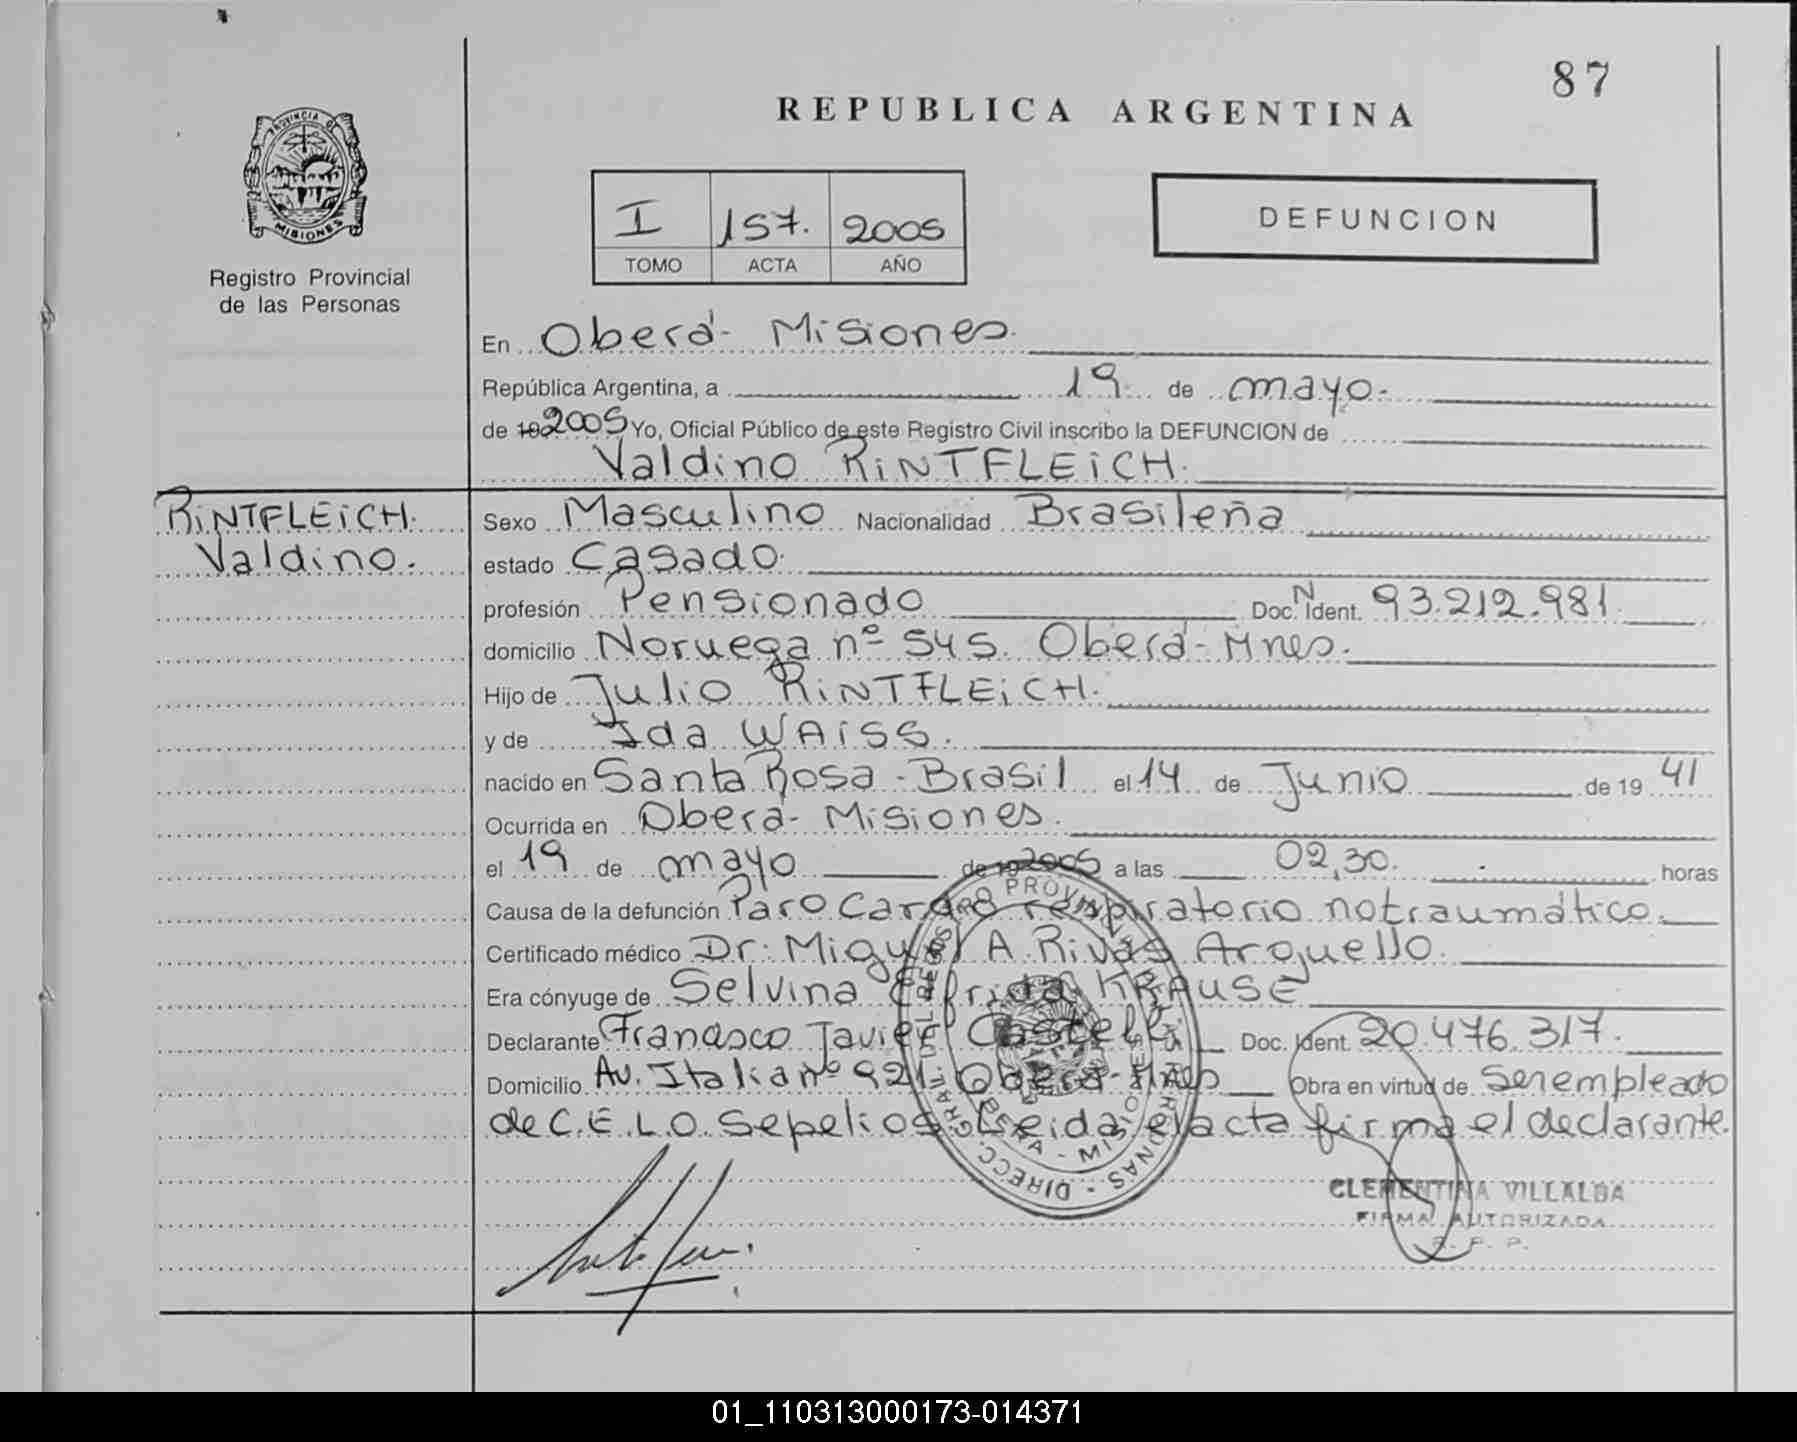 87
REPUBLICA ARGENTINA
PROVINCIA DE
MISIONES
Registro Provincial
de las Personas
I 157. 2005
TOMO ACTA AÑO
DEFUNCION
En Oberá - Misiones.
República Argentina, a 19 de mayo.
de 19 2005 Yo, Oficial Público de este Registro Civil inscribo la DEFUNCION de
Valdino RiNTFLEiCH.
RiNTFLEiCH.
Valdino.
Sexo Masculino Nacionalidad Brasileña
estado Casado.
profesión Pensionado Doc. N Ident. 93.212.981.
domicilio Noruega nº 545. Oberá - Mnes.
Hijo de Julio RiNTFLEiCH.
y de Ida WAiSS.
nacido en Santa Rosa - Brasil el 14 de Junio de 19 41
Ocurrida en Oberá - Misiones.
el 19 de mayo de 19 2005 a las 02,30. horas
Causa de la defunción Paro Cardio respiratorio no traumático.
Certificado médico Dr: Miguel A. Rivas Arguello.
Era cónyuge de Selvina Elfrida KRAUSE
Declarante Francisco Javier Castelli Doc. Ident. 20.476.317.
Domicilio Av. Italia nº 921 Oberá - Mnes Obra en virtud de Ser empleado
de C.E.L.O. Sepelios Leida el acta firma el declarante.
CLEMENTINA VILLALBA
FIRMA AUTORIZADA
R. P. P.
01_110313000173-014371